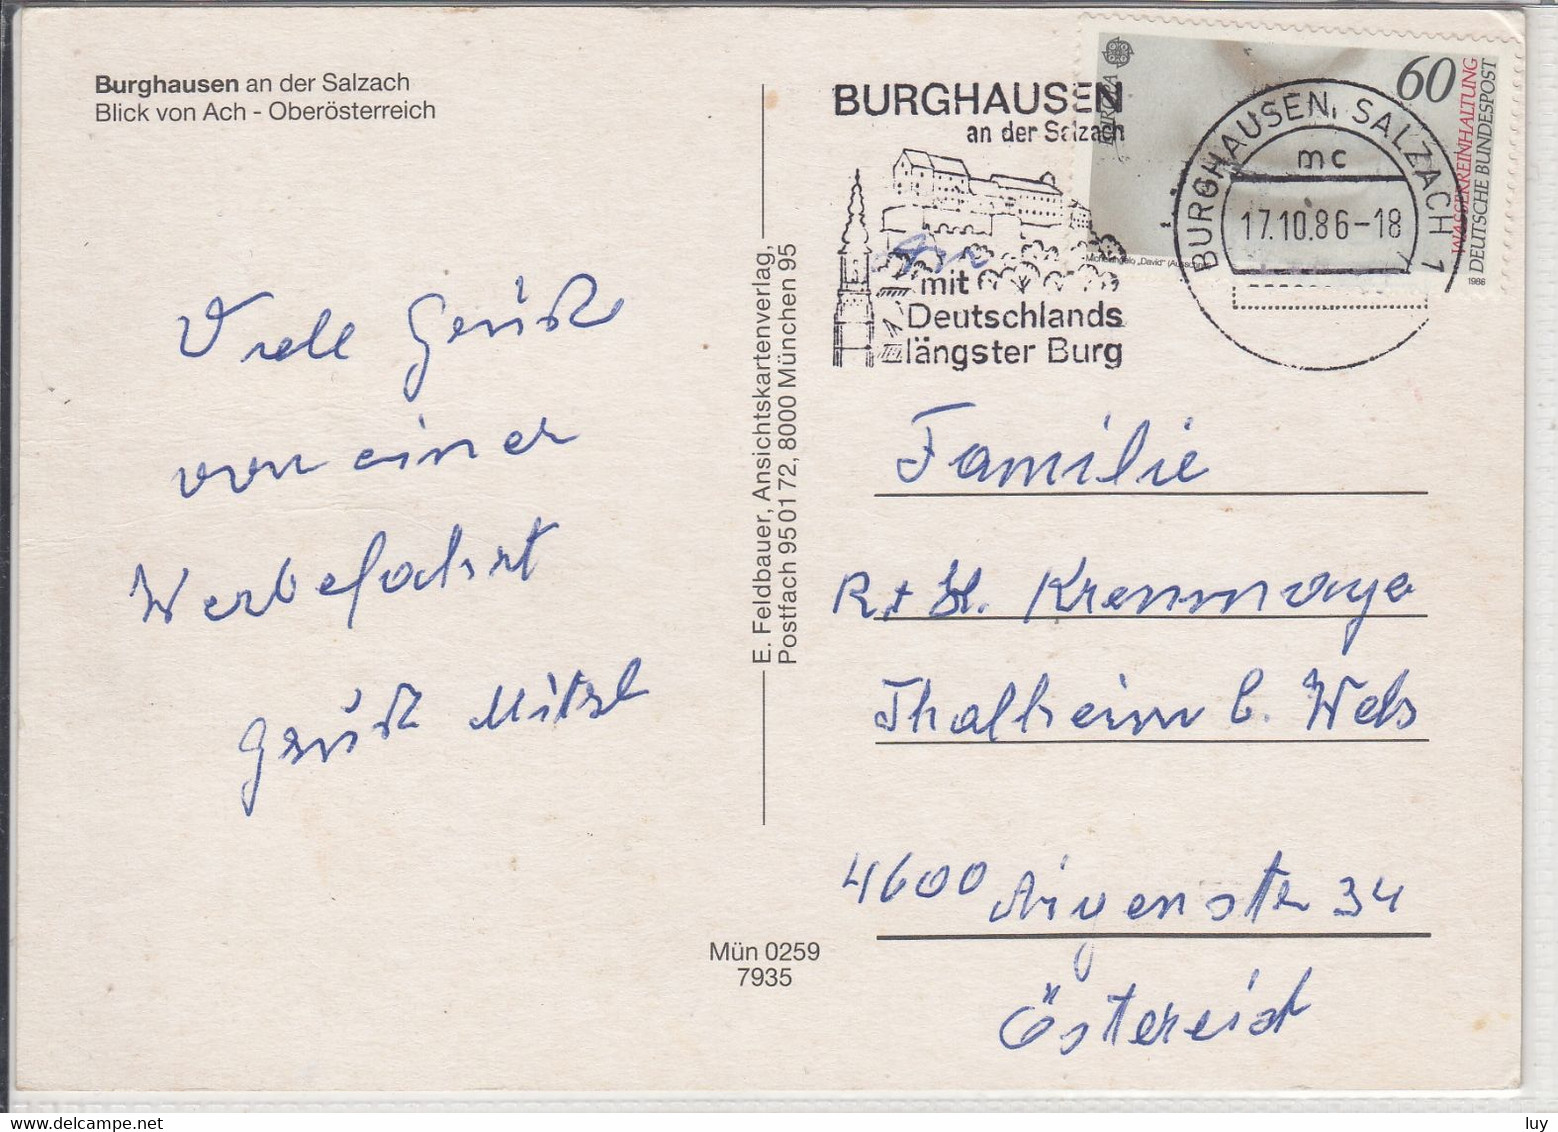 Burghausen an der Salzach
Blick von Ach - Oberösterreich
Viele Grüße
von einer
Werbefahrt
Grüße Mitzl
E. Feldbauer, Ansichtskartenverlag,
Postfach 950172, 8000 München 95
Mün 0259
7935
BURGHAUSEN
an der Salzach
mit
Deutschlands
längster Burg
An
EUROPA
60
WASSERREINHALTUNG
DEUTSCHE BUNDESPOST
1986
Michelangelo „David“
BURGHAUSEN, SALZACH 1
mc
17.10.86-18
Familie
R + H. Krennmayr
Thalheim b. Wels
4600 Aigenstr 34
Österreich
luy